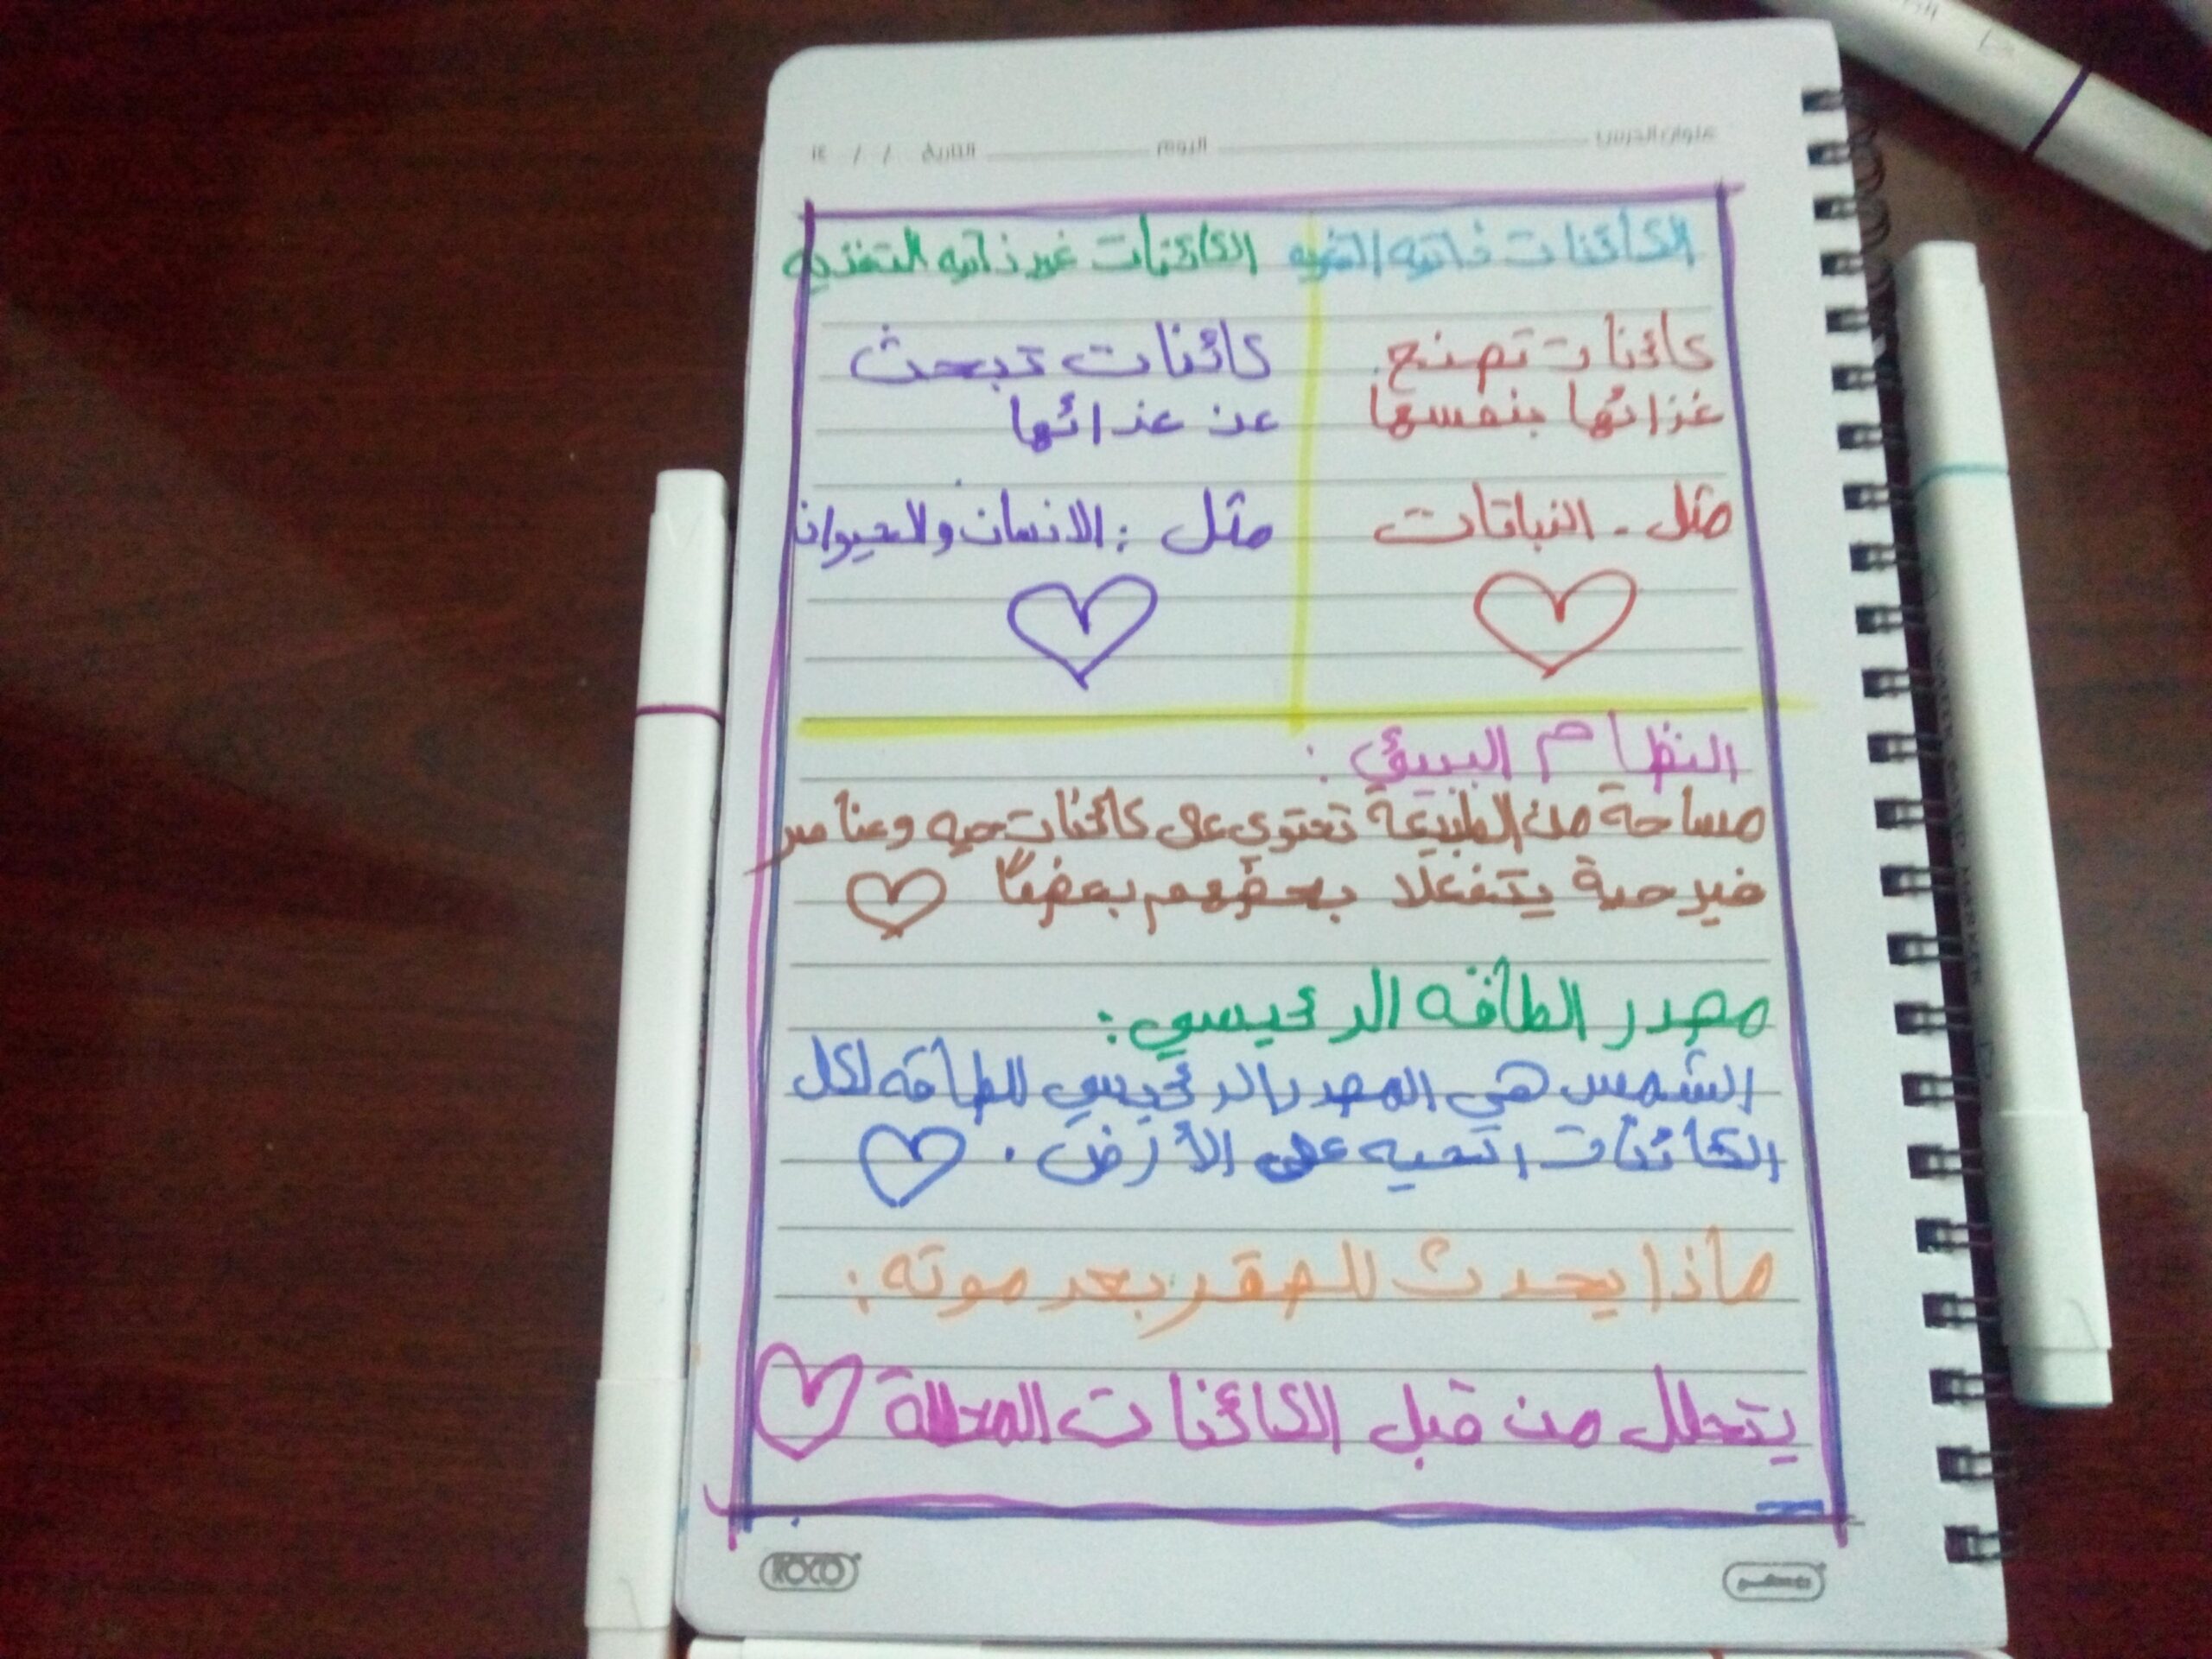 عنوان الدرس اليوم التاريخ / / ١٤
الكائنات ذاتيه التغذيه الكائنات غير ذاتيه التغذيه
كائنات تصنع
غزائها بنفسها
مثل - النباتات
كائنات تبحث
عن عذائها
مثل : الانسان والحيوان
النظام البيئي :
مساحة من الطبيعة تحتوي على كائنات حيه وعناصر
غير حية يتفعلا بعضهم بعضاً
مصدر الطاقه الرئيسي :
الشمس هي المصدر الرئيسي للطاقه لكل
الكائنات الحيه على الأرض .
ماذا يحدث للصقر بعد موته :
يتحلل من قبل الكائنات المحللة
ROCO